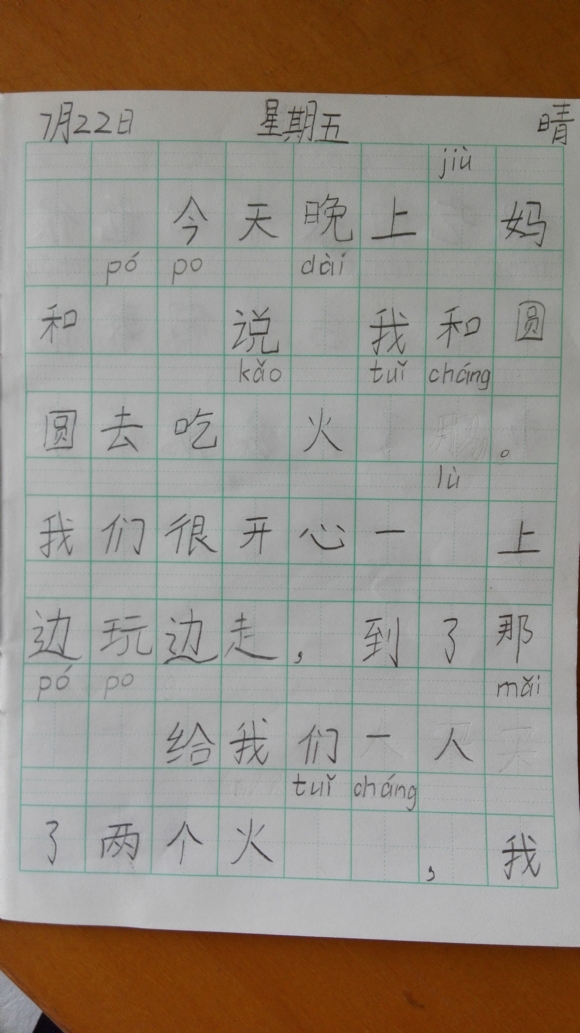 7月22日 星期五 晴
jiù
今天晚上 妈
pó po dài
和 说 我和圆
kǎo tuǐ cháng
圆去吃 火 。
lù
我们很开心一 上
边玩边走，到了那
pó po mǎi
给我们一人
tuǐ cháng
了两个火 ，我